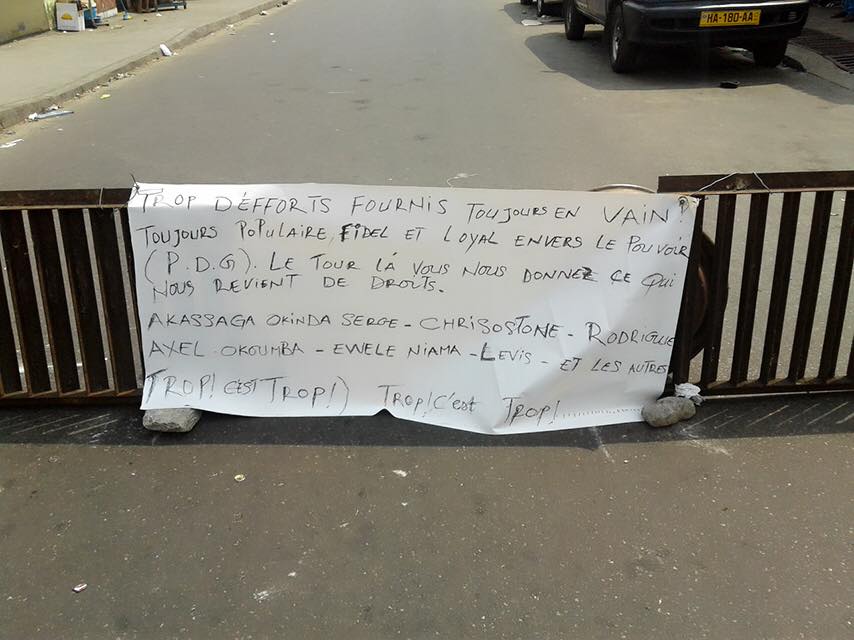 HA-180-AA
TROP D'ÉFFORTS FOURNIS TOUJOURS EN VAIN!
TOUJOURS POPULAIRE, FIDEL ET LOYAL ENVERS LE POUVOIR
(P.D.G). LE TOUR LÀ VOUS NOUS DONNEZ CE QUI
NOUS REVIENT DE DROITS.
AKASSAGA OKINDA SERGE - CHRISOSTONE - RODRIGUE
AXEL OKOUMBA - EWELE NIAMA - LEVIS - ET LES AUTRES
TROP! C'EST TROP!) TROP! C'est TROP!..........